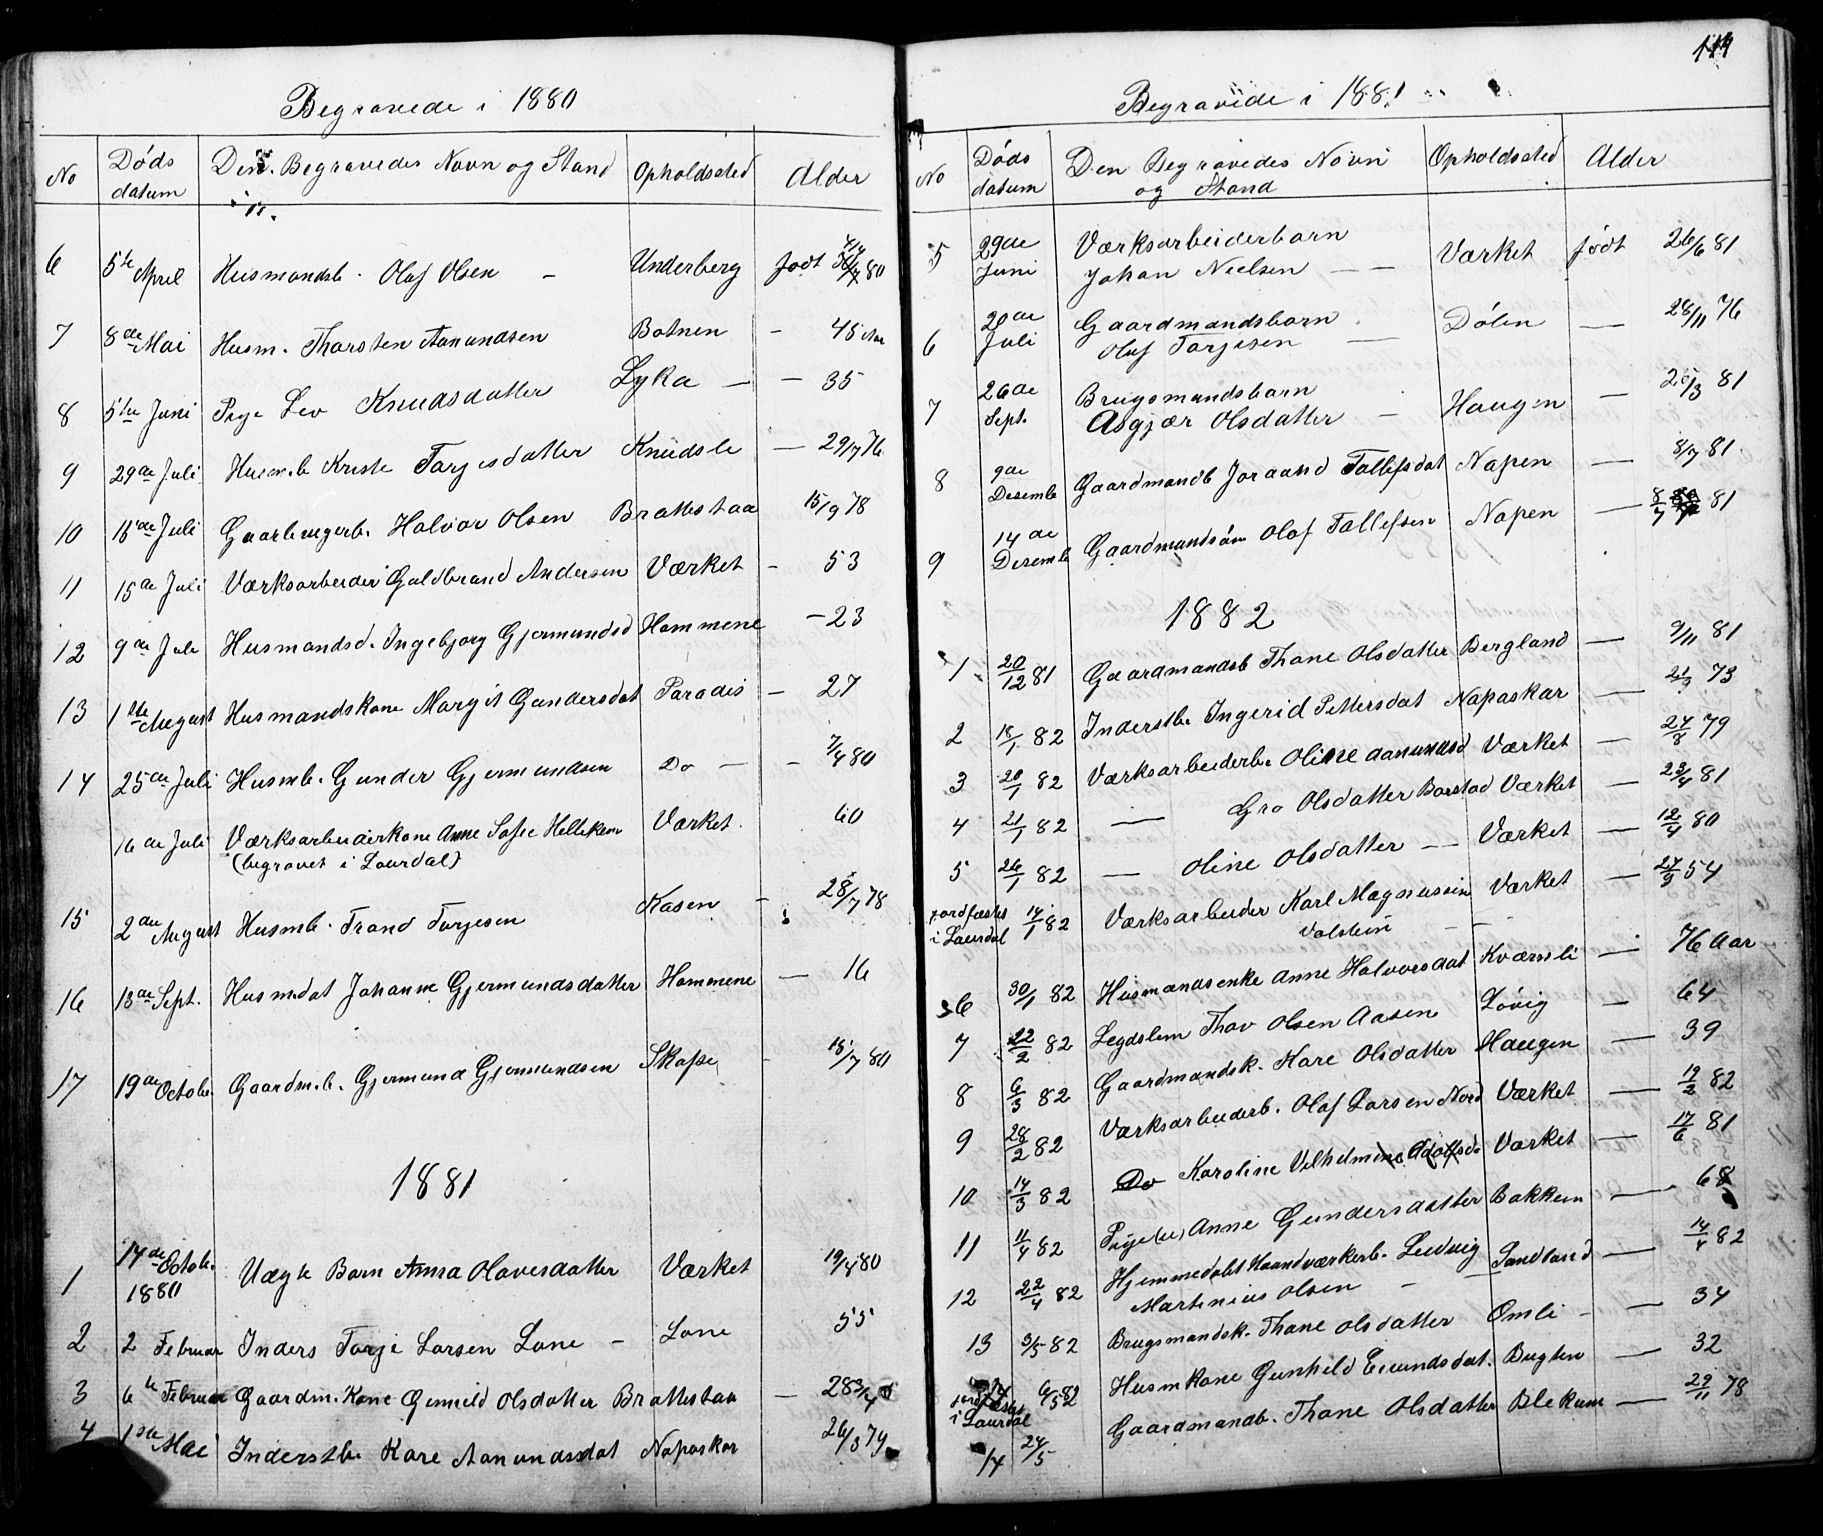 Begravede i 1880
No Døds datum Den Begravedes Navn og Stand Opholdssted Alder
6 5te April Husmandsb. Olaf Olsen – Underberg født 80
7 8de Mai Husm. Thorsten Aanundsen Botnen – 45 Aar
8 5te Juni Pige Lev Knudsdatter Lyka – – 35
9 29de Juli Husmb. Kriste Torjesdatter Knudsle – 29/7 76
10 15de Juli Gaardbrugerb. Halvor Olsen Brattestaa 15/9 78
11 15de Juli Værksarbeider Guldbrand Andersen Værket – 53
12 9de Juli Husmandsd. Ingebjørg Gjermundsd Hommene – 23
13 1ste August Husmandskone Margit Gundersdat Paradis – 27
14 25de Juli Husmb. Gunder Gjermundsen Do – – 7/4 80
16de Juli Værksarbeiderkone Anne Sofie Helleksen Værket. 60
(begravet i Laurdal)
15 2den August Husmb. Trond Torjesen Kasen – 28/7 78
16 13de Sept. Husmdat Johanne Gjermundsdatter Hommene – 16
17 19de Octobr. Gaardm.b. Gjermund Gjermundsen Skafse – 15/7 80
1881
1 14de Octob. 1880 Uægte Barn Anna Olavesdatter Værket 19/4 80
2 2 Februar Inders Torje Larsen Lone – Lone 55
3 6te Februar Gaardm. Kone Gunild Olsdatter Brattestaa – 28
4 1ste Mai Inderstb. Kare Aanundsdat Napaskar 26/3 79
119
Begravede i 1881
No Døds datum Den Begravedes Navn og Stand Opholdssted Alder
5 29de Juni Værksarbeiderbarn Johan Nielsen – – Værket født 26/6 81
6 20de Juli Gaardmandsbarn Oluf Torjesen – Dølen – 28/11 76
7 26de Sept. Brugsmandsbarn Asgjær Olsdatter – Haugen – 25/3 81
8 9de Desemb Gaardmandb Joraand Tallefsdat Napen – 8/7 81.
9 14de Desemb Gaardmandsøn Olaf Tallefsen Napen – 8/7 81
1882
1 20/12 81 Gaardmandsb Thone Olsdatter Bergland – 9/11 81
2 18/1 82 Inderstb. Ingerid Pettersdat Napaskar – 73
3 20/1 82 Værksarbeiderb. Oline Aanundsd Værket – 27/8 79
4 21/1 82 — Gro Olsdatter Borstad Værket – 23/4 81
5 26/1 82 — Oline Olsdatter – – Værket – 12/4 80
jordfæstet i Laurdal 14/1 82 Værksarbeider Karl Magnussen Valstein – – Værket – 27/9 54
6 30/1 82 Husmandsenke Anne Halvorsdat Kværnli – 76 Aar
7 22/2 82 Legdslem Thov Olsen Aasen Løvig – 64
8 6/3 82 Gaardmandsk. Kare Olsdatter Haugen – 39
9 28/2 82 Værksarbeiderb. Olaf Larsen Nord Værket – 19/2 82
10 14/3 82 Do Karoline Vilhelmine Adolfsd. Værket – 17/6 81
11 11/4 82 Pige(u) Anne Gundersdatter Bakken – 68
12 22/4 82 Hjemmedøbt Haandværkerb. Ludvig Martinius Olsen – – Sandland – 14/4 82
13 3/5 82 Brugsmandsk. Thone Olsdatter Omli – – 34
jordfæstet i Laurdal 6/5 82 Husmkone Gunhild Eivindsdat. Bugten – 32
14 24/5 Gaardmandb. Thone Olsdatter Blekum – 29/11 78